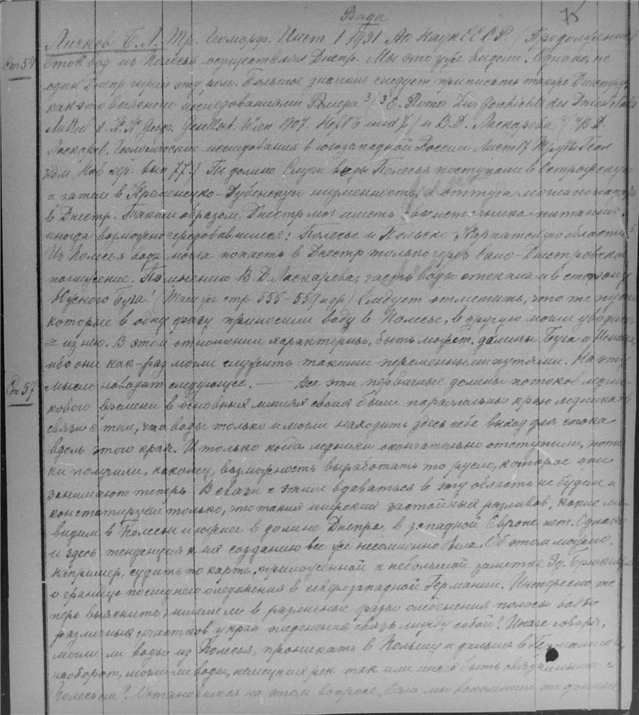 Вода 75
Личков Б. Л. Тр. Геоморф. Инст 1 1931 Ак Наук СССР. Продолжение
Стр 54 Сток вод из Полесья осуществлял Днепр. Мы это уже видели. Однако, не
один Днепр играл эту роль. Большое значение следует приписать также Днестру,
как это выяснено исследованиями Ремера 3/ 3 E. Romer Zur Geschichte des Dniestertales
Mitteil d. K. K. Geogr. Gesellsch Wien 1907. Heft 6 и В. Д. Ласкарева 4/ 4 В. Д.
Ласкарев. Геологические исследования в югозападной России Лист 17 Труды Геол
Ком. Нов сер. вып 77. По долине Случи воды Полесья поступали в Острожскую
а затем в Кременецко-Дубенскую низменность, а оттуда могли попадать
в Днестр. Таким образом, Днестр мог иметь два источника питания,
иногда возможно чередовавшиеся: Полесье и Польско-Карпатскую область.
Из Полесья вода могла попасть в Днестр только через Сано-Днестровское
понижение. По мнению В. Д. Ласкарева, часть воды стекала и в сторону
Южного Буга стр 555-559 Следует отметить, что те пути
которые в одну фазу приносили воду в Полесье, в другую могли уводить
их из нею. В этом отношении характерны, быть может, долины Буга и
ибо они как-раз могли служить такими переменными путями. На эту
Стр 57 мысль наводит следующее. — Все эти первичные долины потоков ледни-
кового времени в основных линиях своих были параллельны краю ледников в
связи с тем, что воды только и могли находить здесь себе выход для стока
вдоль этого края. И только когда ледники окончательно отступили, пото-
ки получили, наконец, возможность выработать то русло, которое они
занимают теперь. В связи с этим вдаваться в эту область не будем и
констатируем только, что такой широкий застойный разливов, какие мы
видим в Полесьи и южнее в долине Днепра, в западной Европе нет. Однако
и здесь тенденция к их созданию все же несомненно была. Об этом можно,
например, судить по карте, приложенной к небольшой заметке Эд. Брюкнера
о границе последнего оледенения в северозападной Германии. Интересно те-
перь выяснить, имели ли в различные фазы оледенения полосы вод
различных участков у края оледенения связь между собой! Иначе говоря,
могли ли воды из Полесья, проникать в Польшу и дальше в Германию и,
наоборот, могли ли воды, немецких рек так или иначе быть связанными с
Полесьем? Остановимся на этом вопросе. Если мы вспомним те данные